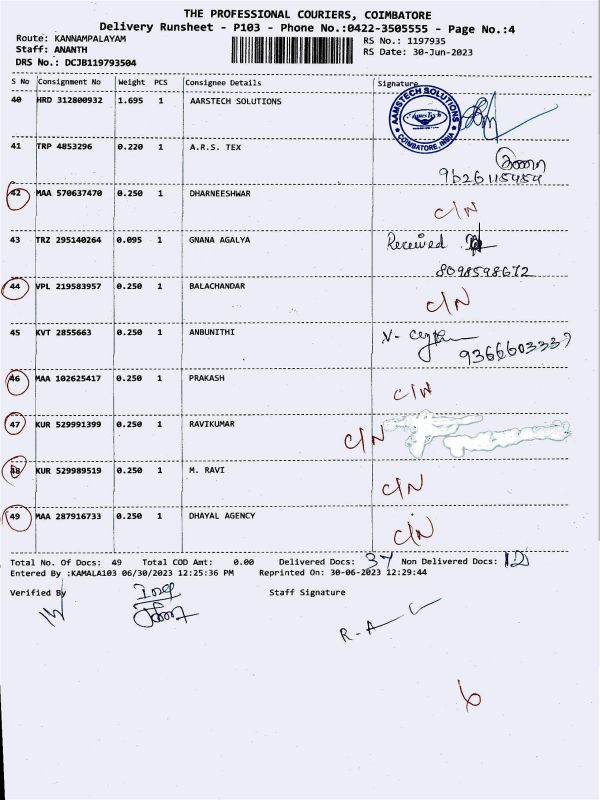 THE PROFESSIONAL COURIERS, COIMBATORE
Delivery Runsheet - P103 - Phone No.:0422-3505555 - Page No.:4
Route: KANNAMPALAYAM RS No.: 1197935
Staff: ANANTH RS Date: 30-Jun-2023
DRS No.: DCJB119793504
S No Consignment No Weight PCS Consignee Details Signature
40 HRD 312800932 1.695 1 AARSTECH SOLUTIONS
AAMSTECH SOLUTIONS
COIMBATORE, INDIA
41 TRP 4853296 0.220 1 A.R.S. TEX
9626115454
42 MAA 570637470 0.250 1 DHARNEESHWAR C/N
43 TRZ 295140264 0.095 1 GNANA AGALYA Received
8098598672
44 VPL 219583957 0.250 1 BALACHANDAR C/N
45 KVT 2855663 0.250 1 ANBUNITHI
9366603337
46 MAA 102625417 0.250 1 PRAKASH C/N
47 KUR 529991399 0.250 1 RAVIKUMAR C/N
48 KUR 529989519 0.250 1 M. RAVI C/N
49 MAA 287916733 0.250 1 DHAYAL AGENCY C/N
Total No. Of Docs: 49 Total COD Amt: 0.00 Delivered Docs: 37 Non Delivered Docs: 12
Entered By :KAMALA103 06/30/2023 12:25:36 PM Reprinted On: 30-06-2023 12:29:44
Verified By Staff Signature
6